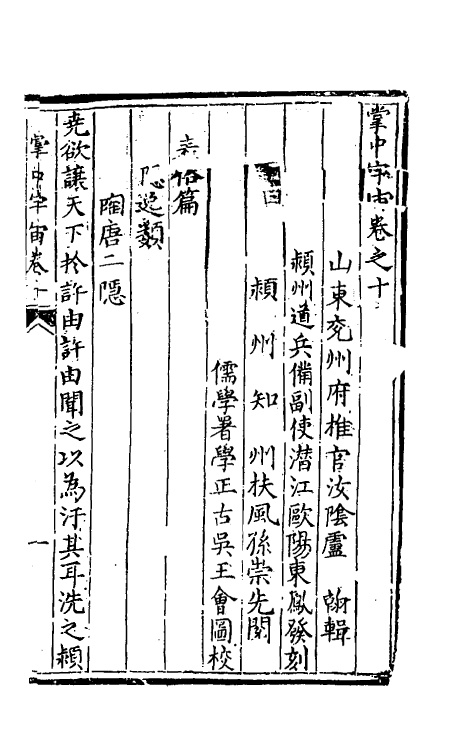 掌中宇宙卷之十
山東兖州府推官汝陰盧翰輯
頴州道兵備副使潛江歐陽東鳳發刻
頴州知州扶風孫崇先閱
儒學署學正古吳王會圖校
目
篇
隱逸類
陶唐二隱
堯欲讓天下扵許由許由聞之以為汙其耳洗之頴
掌中宇宙卷十
一